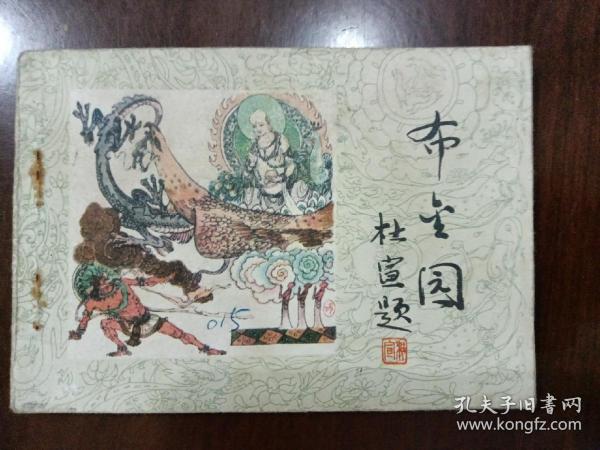 布金园
杜宣题
杜宣
015
孔夫子旧书网
www.kongfz.com